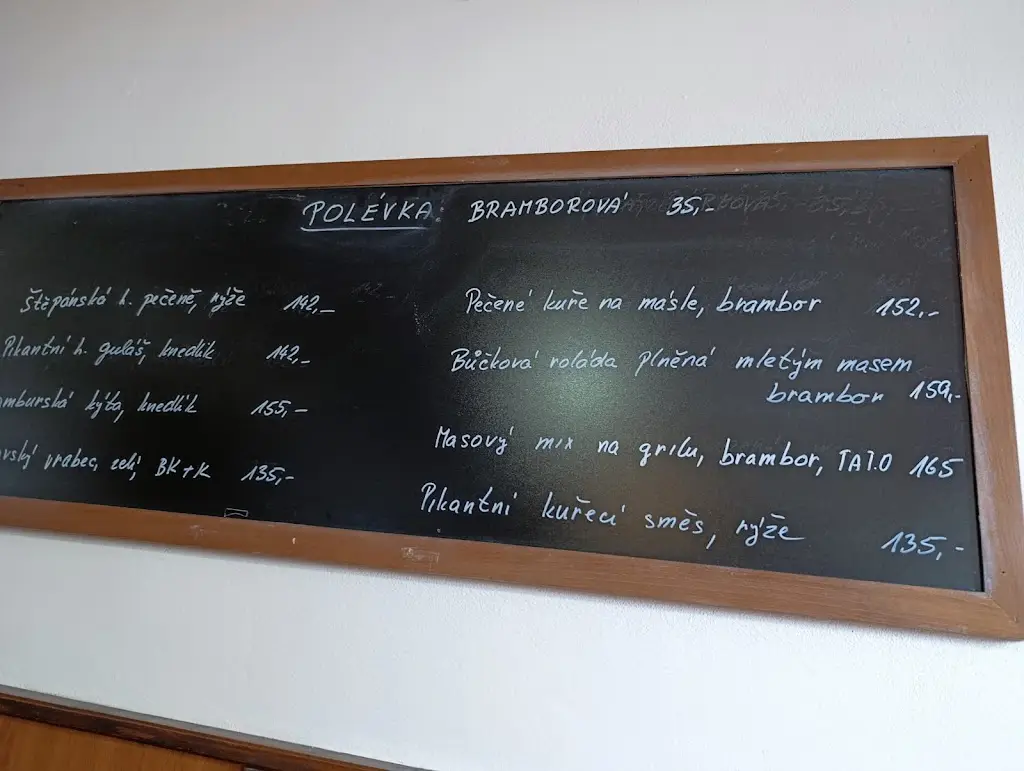 POLÉVKA BRAMBOROVÁ 35,-
Štěpánská h. pečeně, rýže 142,-
Pikantní h. guláš, knedlík 142,-
amburská kýta, knedlík 155,-
vský vrabec, zelí, BK+K 135,-
Pečené kuře na másle, brambor 152,-
Bůčková roláda plněná mletým masem
brambor 159,-
Masový mix na grilu, brambor, TAT.O 165
Pikantní kuřecí směs, rýže 135,-